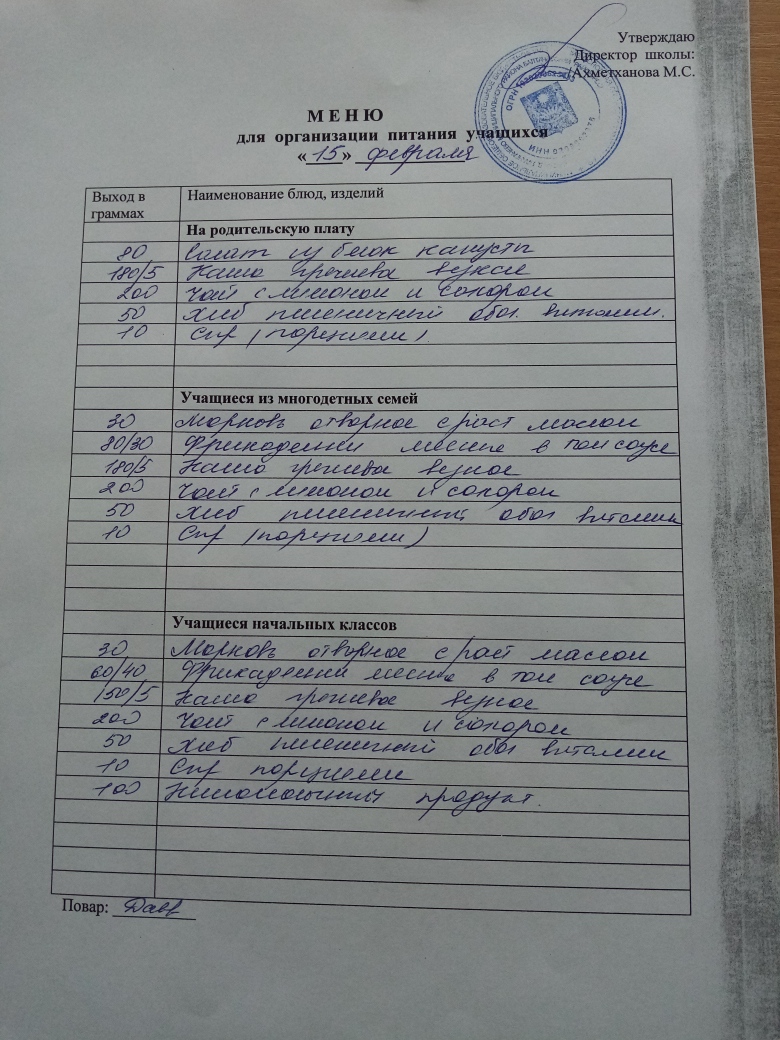 Утверждаю
Директор школы:
Ахметханова М.С.
М Е Н Ю
для организации питания учащихся
« 15 » февраля
Выход в граммах Наименование блюд, изделий
На родительскую плату
80 Салат из белок капусты
180/5 Каша гречнева вязкая
200 Чай с лимоном и сахаром
50 Хлеб пшеничный обог. витамин.
10 Сыр (порциями)
Учащиеся из многодетных семей
30 Морковь отварное с раст маслом
80/30 Фрикадельки мясные в том соусе
180/5 Каша гречнева вязкое
200 Чай с лимоном и сахаром
50 Хлеб пшеничный обог витамин
10 Сыр (порциями)
Учащиеся начальных классов
30 Морковь отварное с раст маслом
60/40 Фрикадельки мясные в том соусе
150/5 Каша гречневое вязкое
200 Чай с лимоном и сахаром
50 Хлеб пшеничный обог витамин
10 Сыр порциями
100 Кисломолочный продукт.
Повар: